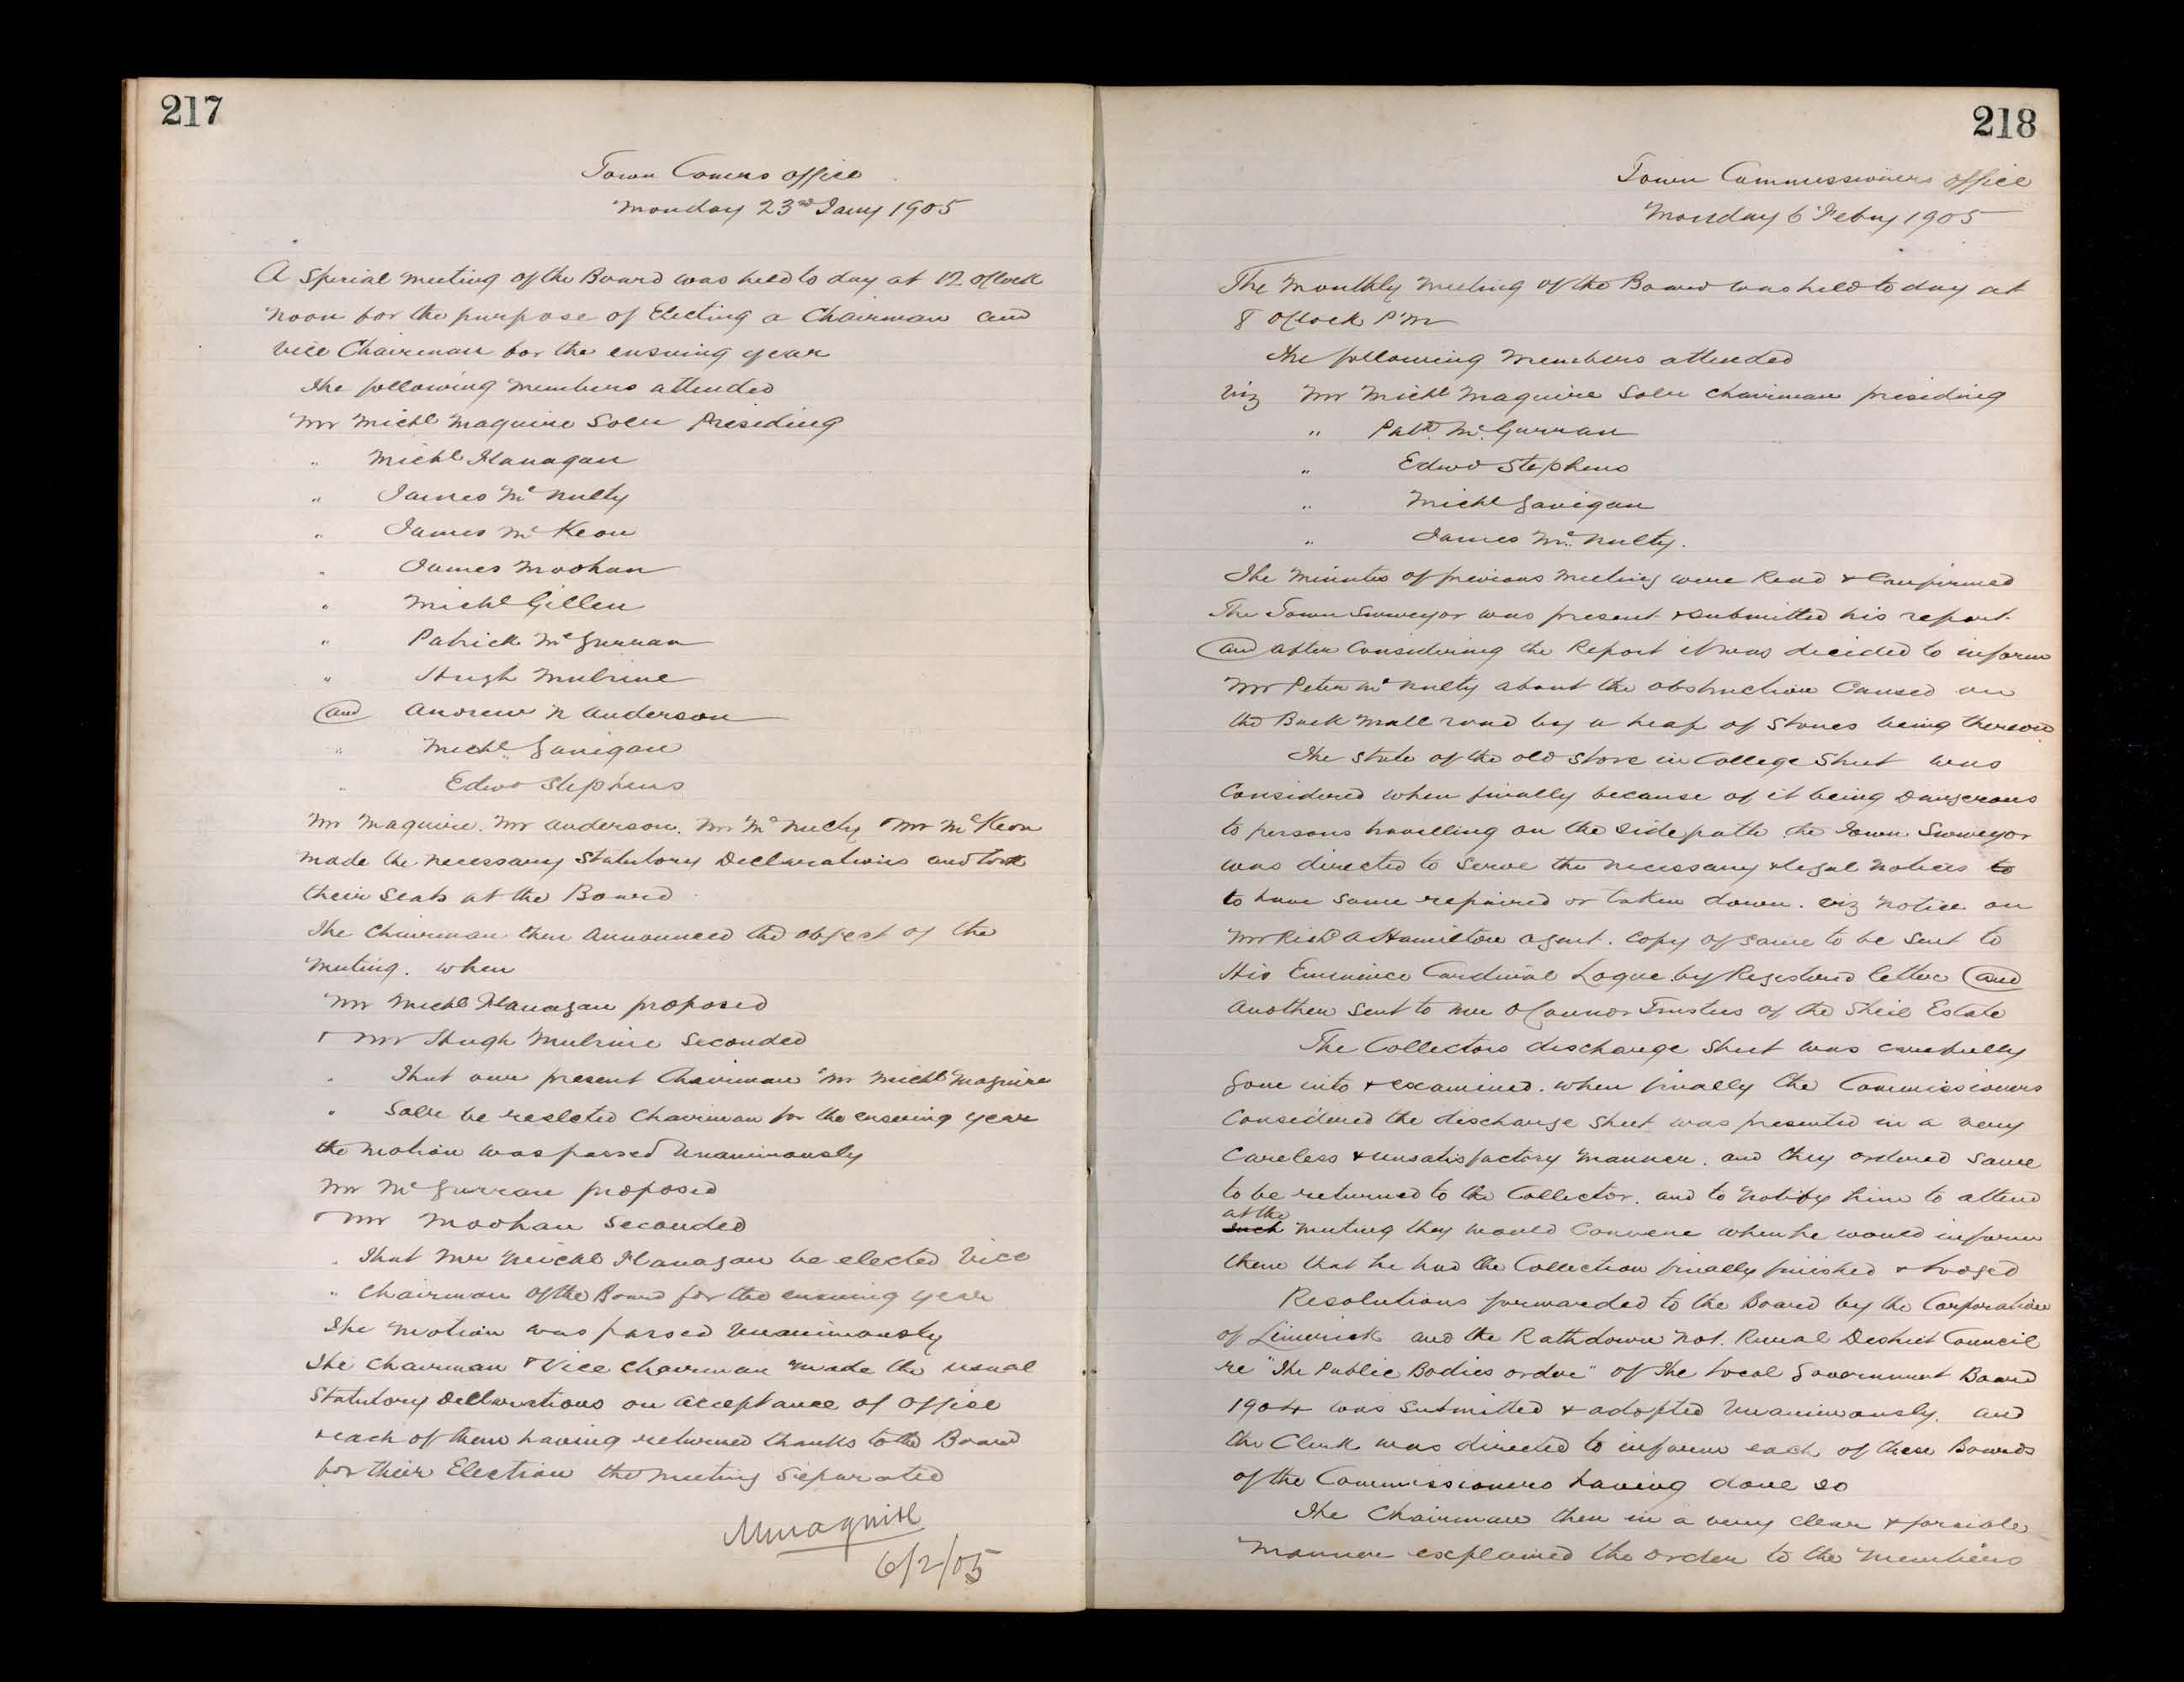 217
Town Comrs office
Monday 23rd Jany 1905
A Special meeting of the Board was held to day at 12 oClock
noon for the purpose of Electing a Chairman and
vice Chairman for the ensuing year
The following members attended
Mr Michl Maguire Solr Presiding
" Michl Flanagan
" James Mc Nulty
" James Mc Keon
" James Moohan
" Michl Gillen
" Patrick McGurran
" Hugh Mulrine
and Andrew N Anderson
" Michl Gavigan
" Edwd Stephens
Mr Maguire. Mr Anderson. Mr McNulty & Mr McKeon
made the necessary Statutory Declarations and took
their Seats at the Board
The Chairman then announced the object of the
meeting. when
Mr Michl Flanagan proposed
& Mr Hugh Mulrine Seconded
" That our present Chairman Mr Michl Maguire
" Solr be reelected Chairman for the ensuing year
the motion was passed Unanimously
Mr McGurran proposed
& Mr Moohan Seconded
" That Mr Michl Flanagan be elected Vice
" Chairman of the Board for the ensuing year
The motion was passed Unanimously
The Chairman & Vice Chairman made the usual
Statutory Declarations on acceptance of office
& each of them having returned thanks to the Board
for their Election the meeting Separated
MMaguire
6/2/05
218
Town Commissioners office
Monday 6 Feby 1905
The Monthly Meeting of the Board was held to day at
8 oClock P.M
The following Members attended
viz Mr Michl Maguire Solr Chairman presiding
" Patk. Mc.Gurran
" Edwd Stephens
" Michl Gavigan
" James Mc. Nulty.
The minutes of previous meeting were Read & Confirmed
The Town Surveyor was present & submitted his report.
and after Considering the Report it was decided to inform
Mr Peter Mc Nulty about the obstruction Caused on
the Back Mall road by a heap of Stones being thereon
The state of the old store in College Street was
Considered when finally because of it being Dangerous
to persons travelling on the sidepath the Town Surveyor
was directed to serve the necessary & legal notices to
to have same repaired or taken down. viz notice on
Mr Richd A Hamilton agent. Copy of same to be sent to
His Eminence Cardinal Logue by Registered letter and
another sent to Mr OConnor Trustees of the Sheil Estate
The Collectors discharge Sheet was carefully
gone into & examined. when finally the Commissioners
Considered the discharge sheet was presented in a very
Careless & unsatisfactory manner. and they ordered same
to be returned to the Collector. and to notify him to attend
at the
such meeting they would Convene when he would inform
them that he had the Collection finally finished & lodged
Resolutions forwarded to the Board by the Corporation
of Limerick and the Rathdown No1. Rural District Council
re "The Public Bodies order" of The Local Government Board
1904 was submitted & adopted Unanimously. and
the Clerk was directed to inform each of these Boards
of the Commissioners having done so
The Chairman then in a very clear & forcible
manner explained the order to the Members